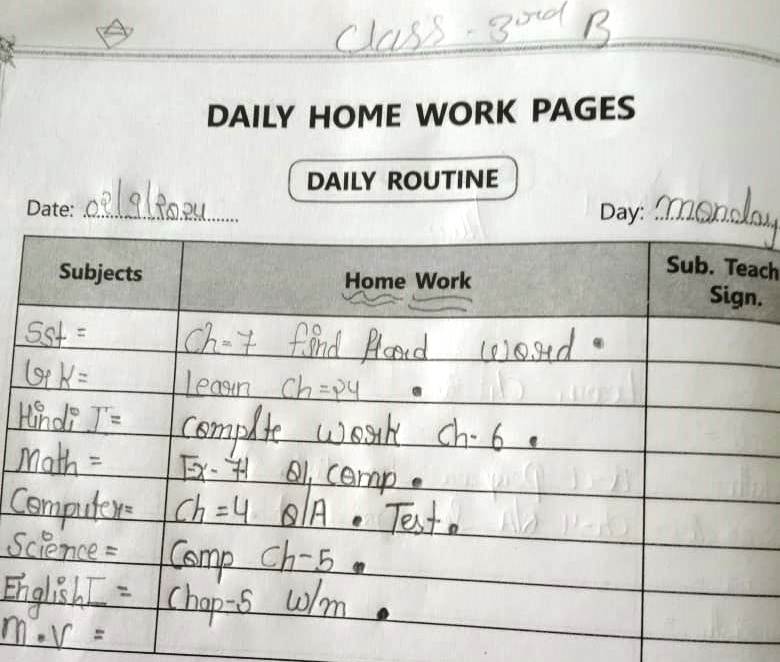 Class - 3rd B
DAILY HOME WORK PAGES
DAILY ROUTINE
Date: 02/9/2024 Day: Monday
Subjects Home Work Sub. Teach
Sign.
Sst = Ch-7 find Hard word .
G.K = learn Ch=24 .
Hindi I = Complte work Ch-6 .
Math = Ex-7 comp .
Computer = Ch=4 Q/A . Test .
Science = Comp Ch-5 .
English I = Chap-5 w/m .
M.V =